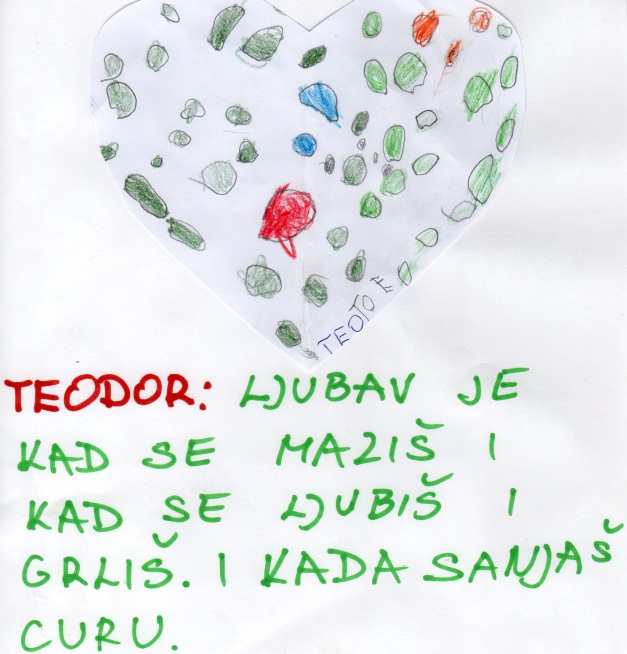 TEOTO E
TEODOR: LJUBAV JE
KAD SE MAZIŠ I
KAD SE LJUBIŠ I
GRLIŠ. I KADA SANJAŠ
CURU.